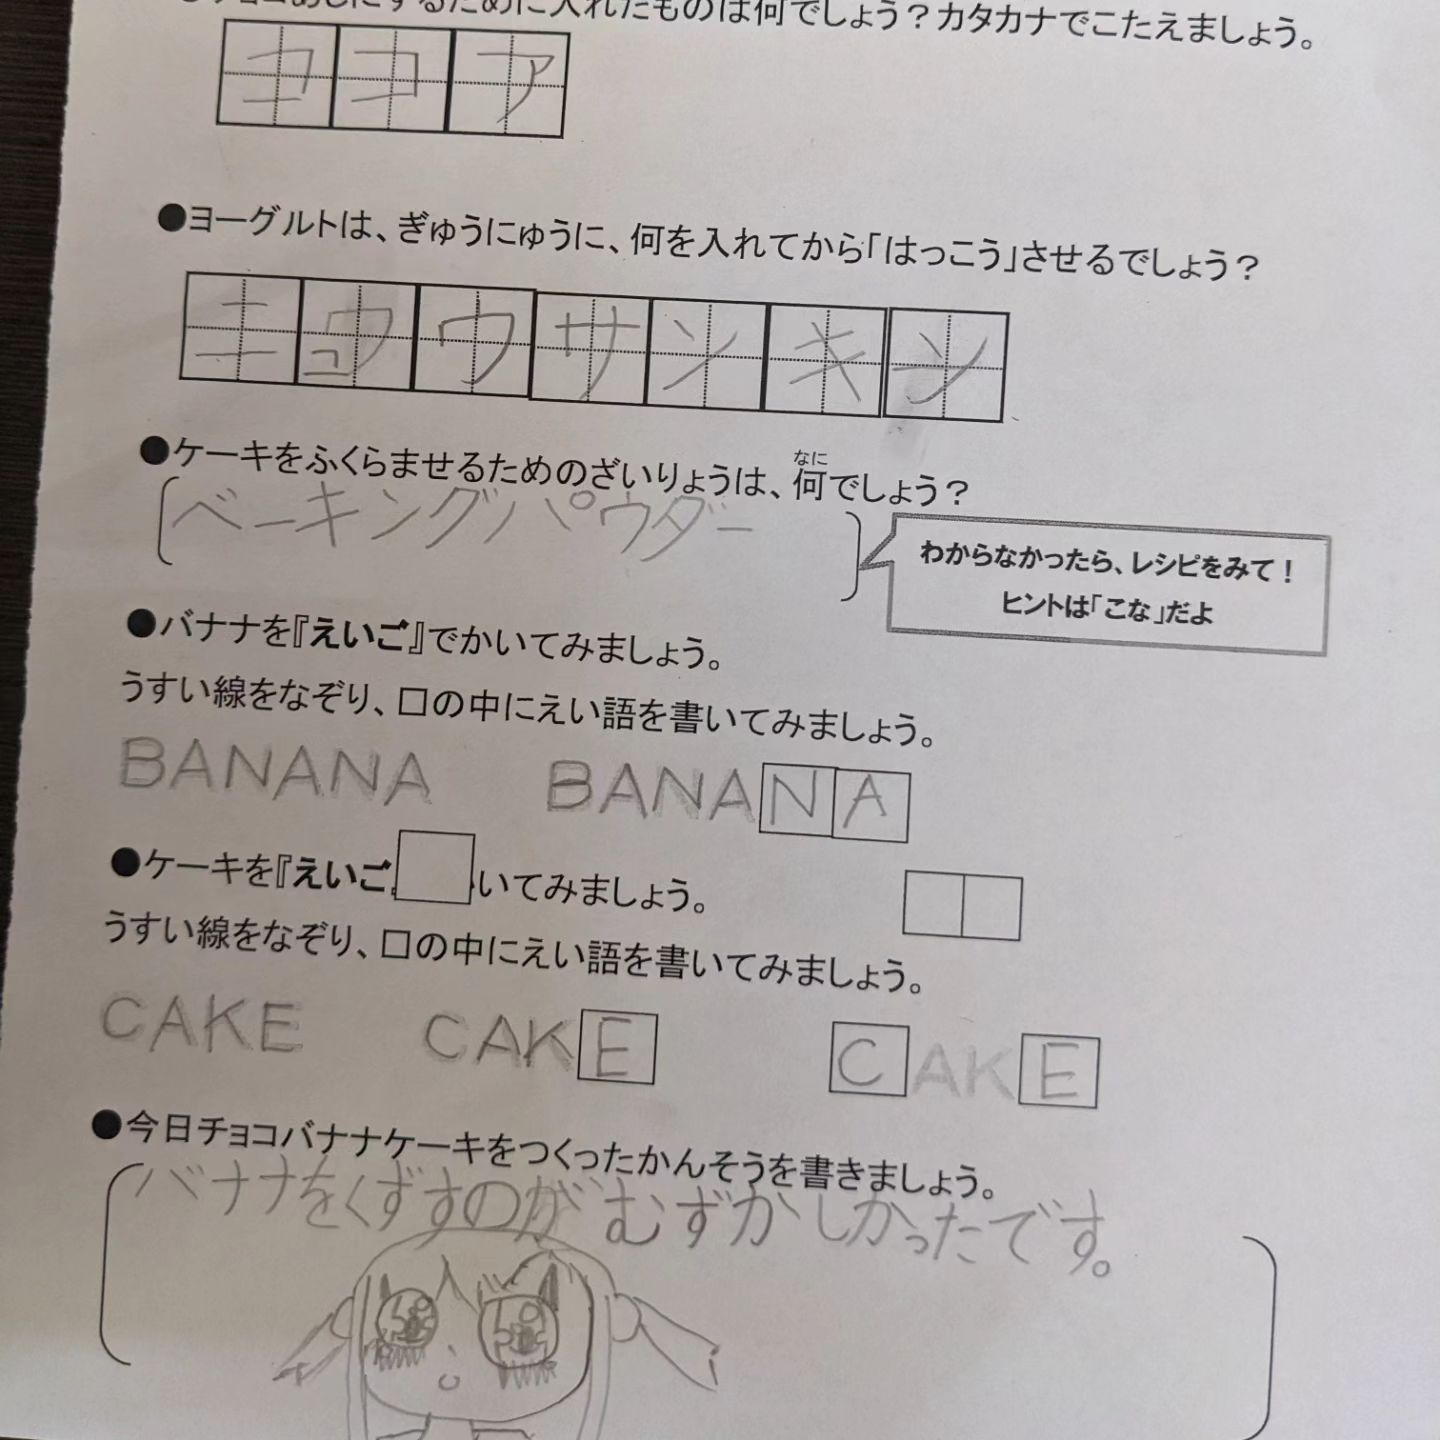 チョコあじにするために入れたものは何でしょう？カタカナでこたえましょう。
ココア
●ヨーグルトは、ぎゅうにゅうに、何を入れてから「はっこう」させるでしょう？
ニュウサンキン
●ケーキをふくらませるためのざいりょうは、何でしょう？
なに
ベーキングパウダー
わからなかったら、レシピをみて！
ヒントは「こな」だよ
●バナナを『えいご』でかいてみましょう。
うすい線をなぞり、口の中にえい語を書いてみましょう。
BANANA BANANA
●ケーキを『えいご いてみましょう。
うすい線をなぞり、口の中にえい語を書いてみましょう。
CAKE CAKE CAKE
●今日チョコバナナケーキをつくったかんそうを書きましょう。
バナナをくずすのがむずかしかったです。